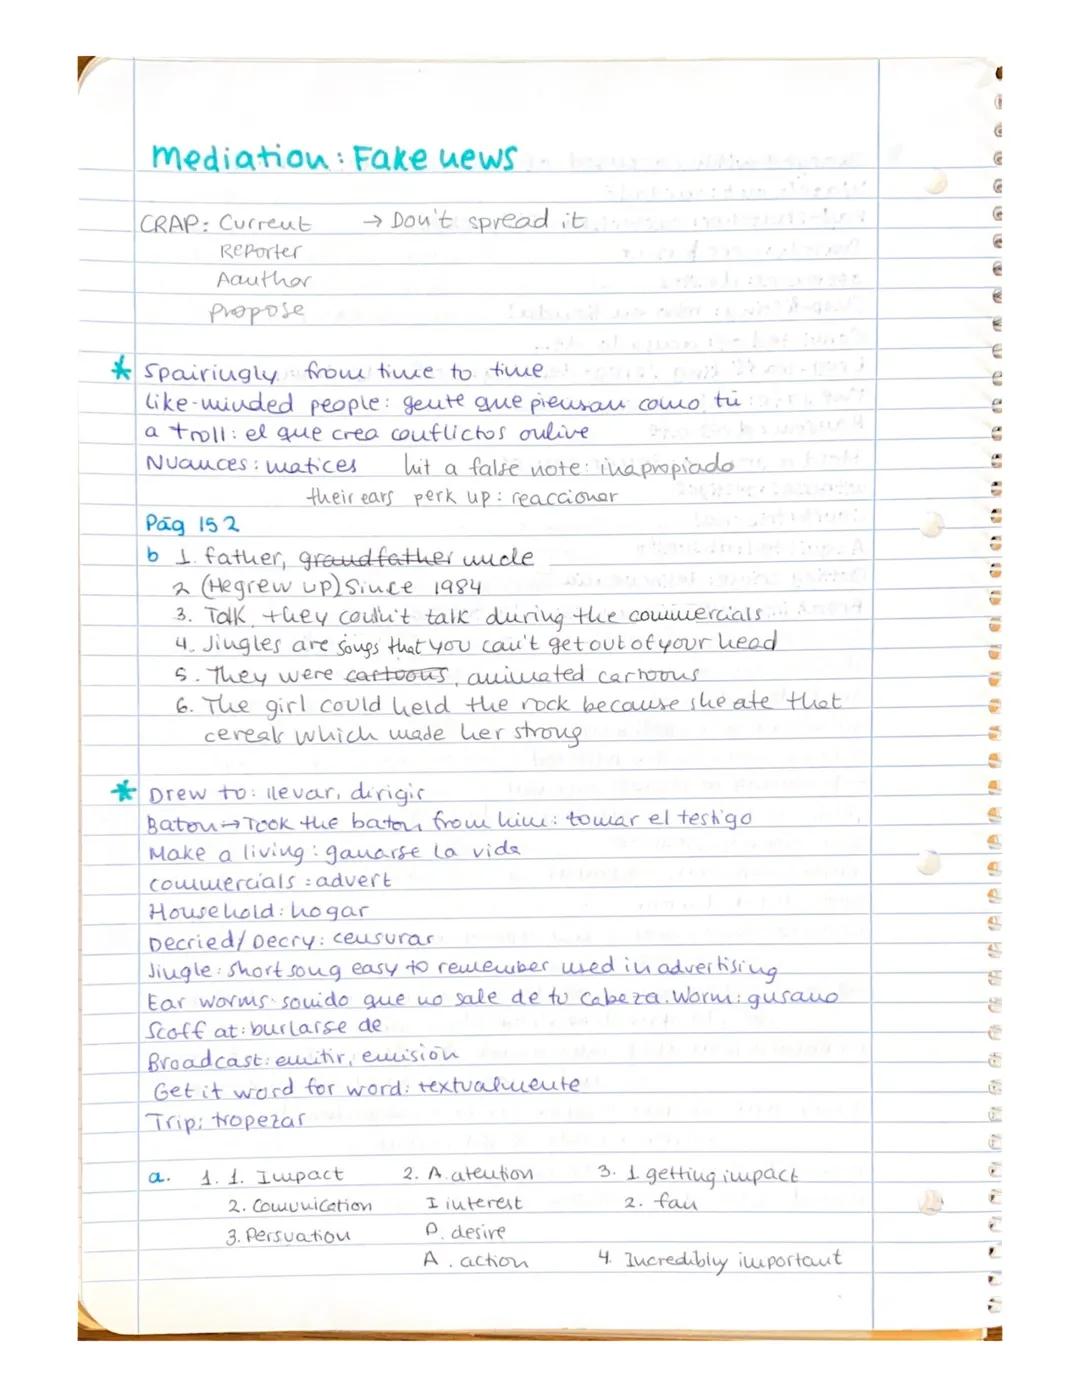 Mediation: Fake news
CRAP: Current → Don't spread it
Reporter
Aauthor
Propose
* Spairingly: from time to time
like-minded people: gente que piensan como tú
a troll: el que crea conflictos onlive
Nuances: matices hit a false note: inapropiado
their ears perk up: reaccionar
Pág 152
b 1. father, grandfather uncle
2 (He grew up) Since 1984
3. Talk, they couldn't talk during the commercials
4. Jingles are songs that you can't get out of your head
5. They were cartoons, animated cartoons
6. The girl could held the rock because she ate that
cereals which made her strong
* Drew to: llevar, dirigir
Baton → Took the baton from him: tomar el testigo
Make a living: ganarse la vida
commercials: advert
Household: hogar
Decried/Decry: censurar
Jingle: short song easy to remember used in advertising
Ear worms: sonido que no sale de tu cabeza. Worm: gusano
Scoff at: burlarse de
Broadcast: emitir, emisión
Get it word for word: textualmente
Trip: tropezar
a. 1. 1. Impact 2. A. atention 3. 1. getting impact
2. Comunication I interest 2. fan
3. Persuation D. desire
A. action 4. Incredibly important